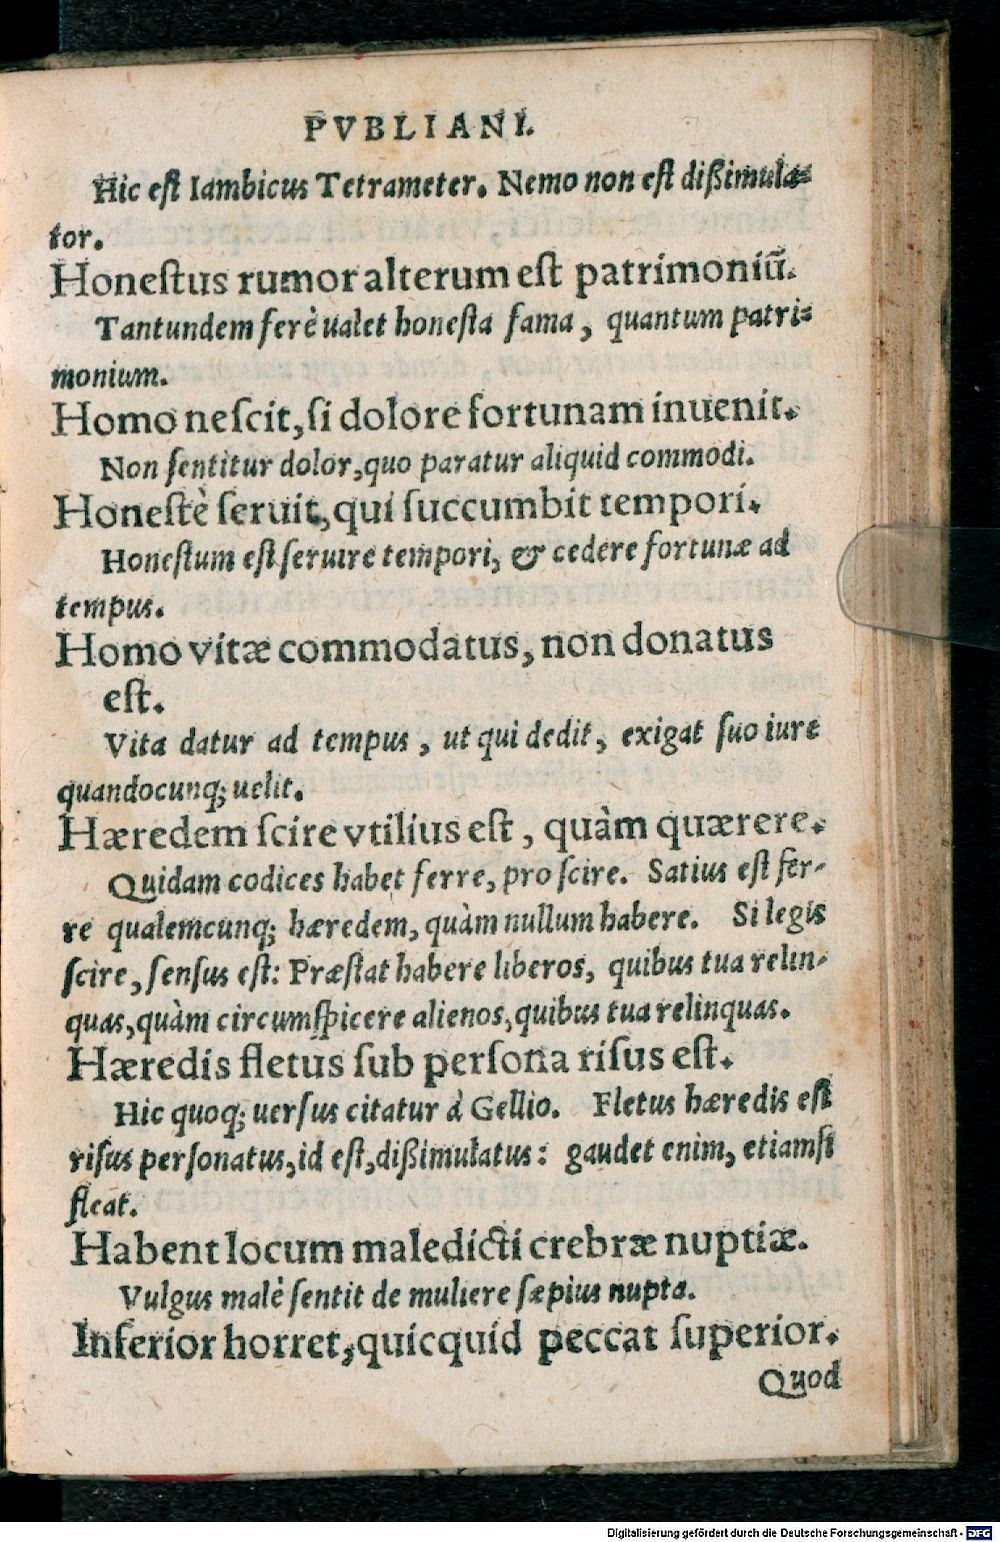 PVBLIANI.
Hic eſt Iambicus Tetrameter. Nemo non eſt dißimula⸗
tor.
Honeſtus rumor alterum eſt patrimoniũ.
Tantundem ferè ualet honeſta fama, quantum patri⸗
monium.
Homo neſcit, ſi dolore fortunam inuenit.
Non ſentitur dolor, quo paratur aliquid commodi.
Honeſtè ſeruit, qui ſuccumbit tempori.
Honeſtum eſt ſeruire tempori, & cedere fortunæ ad
tempus.
Homo vitæ commodatus, non donatus
eſt.
Vita datur ad tempus, ut qui dedit, exigat ſuo iure
quandocunq; uelit.
Hæredem ſcire vtilius eſt, quàm quærere.
Quidam codices habet ferre, pro ſcire. Satius eſt fer-
re qualemcunq; hæredem, quàm nullum habere. Si legis
ſcire, ſenſus eſt: Præſtat habere liberos, quibus tua relin-
quas, quàm circumſpicere alienos, quibus tua relinquas.
Hæredis fletus ſub perſona riſus eſt.
Hic quoq; uerſus citatur à Gellio. Fletus hæredis eſt
riſus perſonatus, id eſt, dißimulatus: gaudet enim, etiamſi
fleat.
Habent locum maledicti crebræ nuptiæ.
Vulgus malè ſentit de muliere ſæpius nupta.
Inferior horret, quicquid peccat ſuperior.
Quod
Digitalisierung gefördert durch die Deutsche Forschungsgemeinschaft - DFG